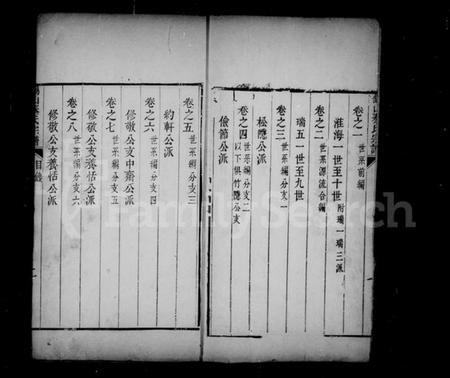 卷之一 世系前編
淮海一世至十世 附瑞一瑞三派
卷之二 世系源流合編
瑞五一世至九世
卷之三 世系編分支一
松隱公派
卷之四 世系編分支二 以下俱竹隱公支
儉節公派
卷之五 世系編分支三
約軒公派
卷之六 世系編分支四
修敬公支中齋公派
卷之七 世系編分支五
修敬公支養恬公派
卷之八 世系編分支六
修敬公支養恬公派
FamilySearch